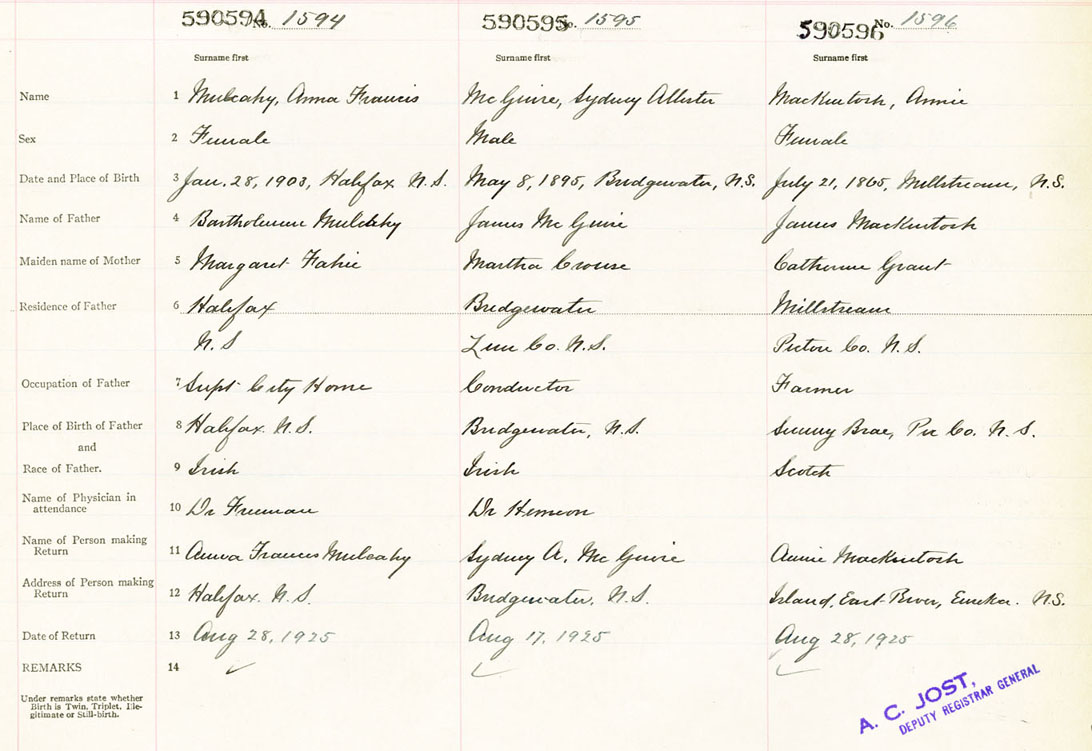 590594 No. 1594 590595 No. 1595 590596 No. 1596
Surname first Surname first Surname first
Name 1 Mulcahy, Anna Francis McGuire, Sydney Allister MacKintosh, Annie
Sex 2 Female Male Female
Date and Place of Birth 3 Jan. 28, 1903, Halifax N.S. May 8, 1895, Bridgewater, N.S. July 21, 1865, Millstream, N.S.
Name of Father 4 Bartholomew Mulcahy James McGuire James MacKintosh
Maiden name of Mother 5 Margaret Fahie Martha Crouse Catherine Grant
Residence of Father 6 Halifax Bridgewater Millstream
N.S Lun Co. N.S. Pictou Co. N.S.
Occupation of Father 7 Supt City Home Conductor Farmer
Place of Birth of Father 8 Halifax. N.S. Bridgewater, N.S. Sunny Brae, Pic Co. N.S.
and
Race of Father. 9 Irish Irish Scotch
Name of Physician in
attendance 10 Dr Freeman Dr Hemeon
Name of Person making
Return 11 Anna Frances Mulcahy Sydney A. McGuire Annie MacKintosh
Address of Person making
Return 12 Halifax. N.S. Bridgewater, N.S. Island, East River, Eureka. N.S.
Date of Return 13 Aug 28, 1925 Aug 17, 1925 Aug 28, 1925
REMARKS 14
Under remarks state whether
Birth is Twin, Triplet, Ille-
gitimate or Still-birth.
A. C. JOST,
DEPUTY REGISTRAR GENERAL